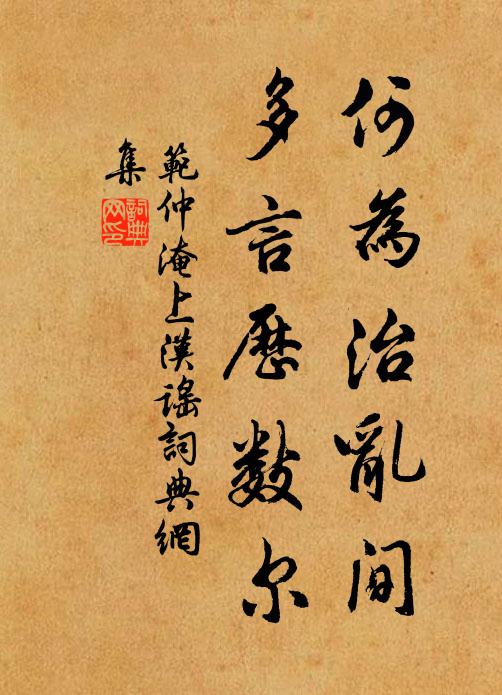 何為治亂间
多言歷数尔
範仲淹上漢謠詞典網
集
詞典
网印